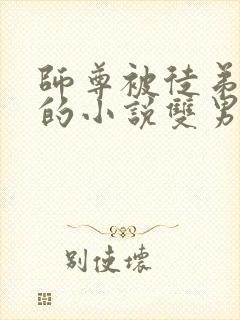 師尊被徒弟
的小說雙男
別使壞